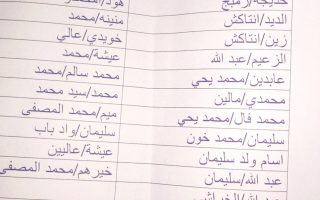 خديجة/زميج
الديد/انتاكش
زين/انتاكش
الزعيم/عبد الله
عابدين/محمد يحي
محمدي/مالين
محمد فال/محمد يحي
سليمان/محمد خون
اسام ولد سليمان
عبد الله/سليمان
منينه/محمد
خويدي/عالي
عيشة/محمد
محمد سالم/محمد
محمد/سيد محمد
ميم/محمد المصفى
سليمان/واد باب
عيشة/عاليين
خيرهم/محمد المصفى